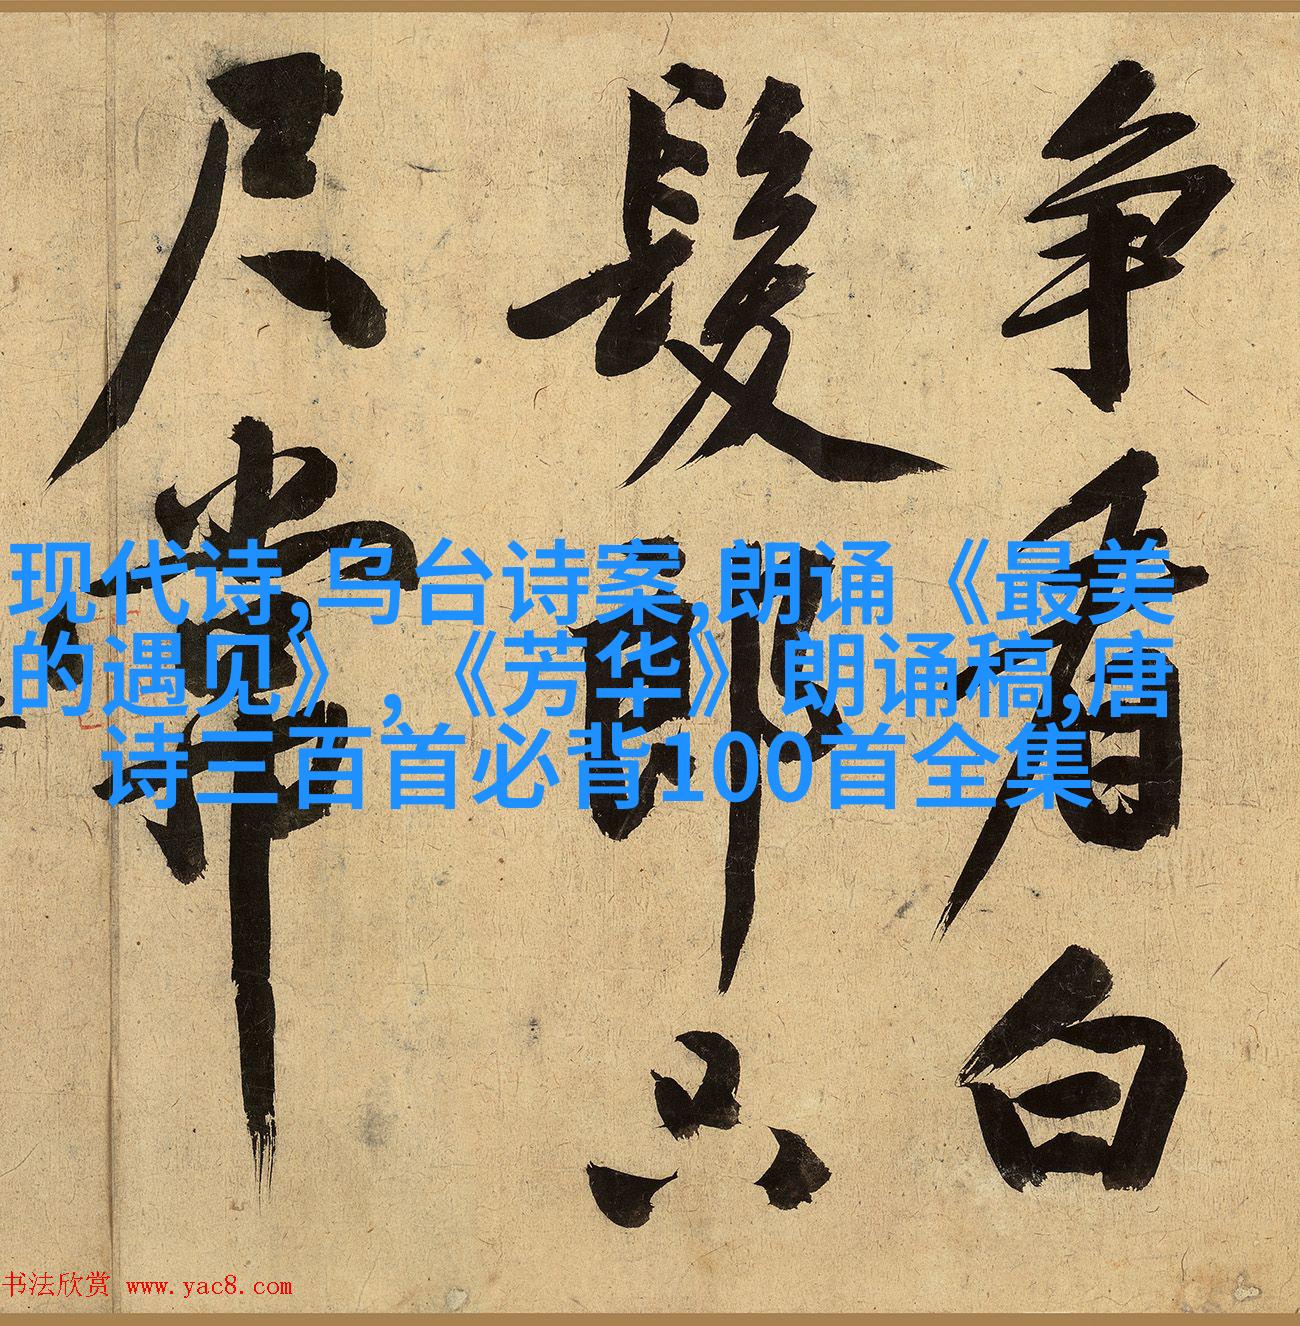 争看白
髮郎只
尺常
现代诗,乌台诗案,朗诵《最美
的遇见》,《芳华》朗诵稿,唐
诗三百首必背100首全集
书法欣赏 www.yac8.com